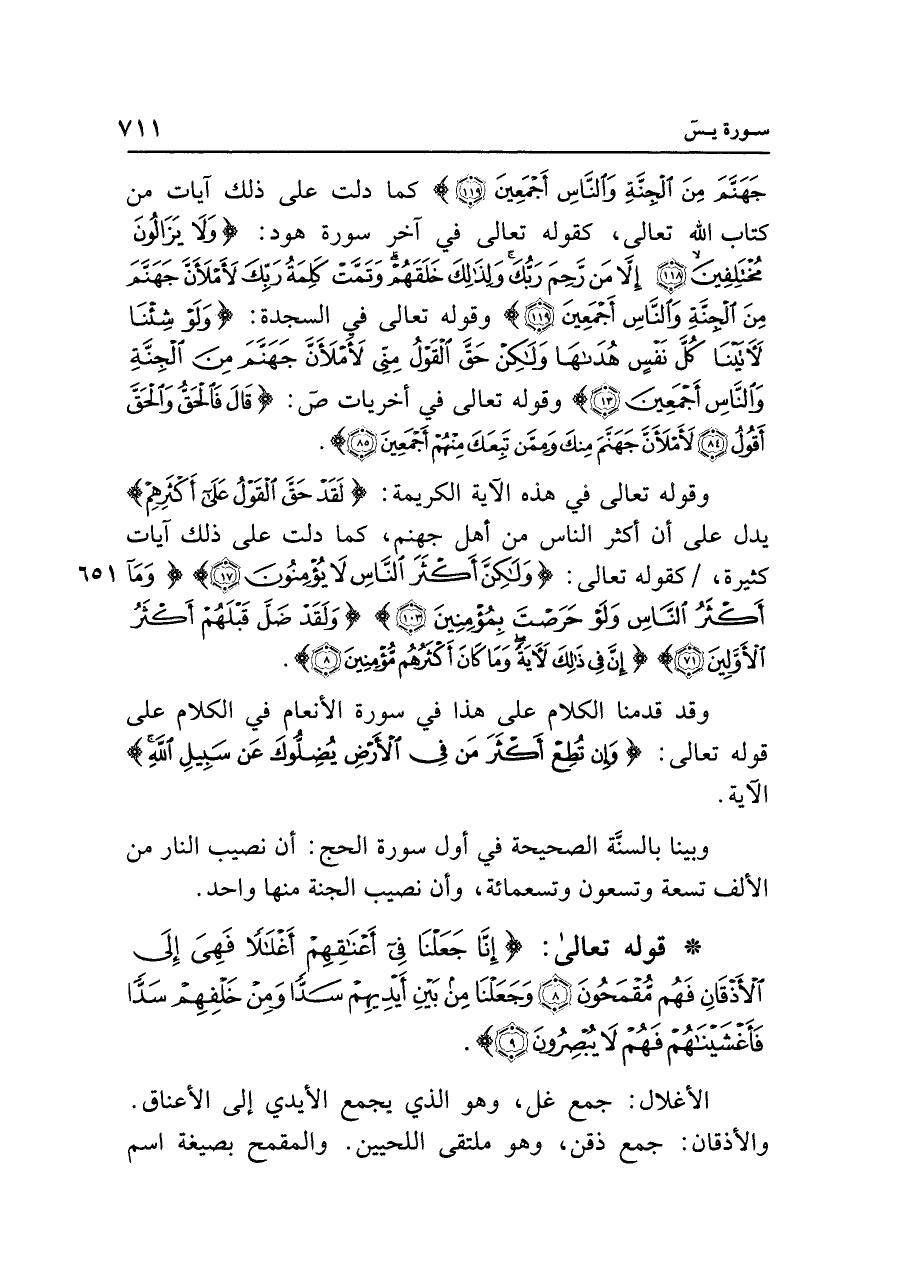 سورة يسۤ ٧١١
جَهَنَّمَ مِنَ ٱلْجِنَّةِ وَٱلنَّاسِ أَجْمَعِينَ ﴿١١٩﴾ كما دلت على ذلك آيات من
كتاب الله تعالى، كقوله تعالى في آخر سورة هود: ﴿وَلَا يَزَالُونَ
مُخْتَلِفِينَۙ ﴿١١٨﴾ إِلَّا مَن رَّحِمَ رَبُّكَۚ وَلِذَٰلِكَ خَلَقَهُمْۗ وَتَمَّتْ كَلِمَةُ رَبِّكَ لَأَمْلَأَنَّ جَهَنَّمَ
مِنَ ٱلْجِنَّةِ وَٱلنَّاسِ أَجْمَعِينَ ﴿١١٩﴾ وقوله تعالى في السجدة: ﴿وَلَوْ شِئْنَا
لَآتَيْنَا كُلَّ نَفْسٍ هُدَىٰهَا وَلَٰكِنْ حَقَّ ٱلْقَوْلُ مِنِّي لَأَمْلَأَنَّ جَهَنَّمَ مِنَ ٱلْجِنَّةِ
وَٱلنَّاسِ أَجْمَعِينَ ﴿١٣﴾ وقوله تعالى في أخريات صۤ: ﴿قَالَ فَٱلْحَقُّ وَٱلْحَقَّ
أَقُولُ ﴿٨٤﴾ لَأَمْلَأَنَّ جَهَنَّمَ مِنكَ وَمِمَّن تَبِعَكَ مِنْهُمْ أَجْمَعِينَ ﴿٨٥﴾.
وقوله تعالى في هذه الآية الكريمة: ﴿لَقَدْ حَقَّ ٱلْقَوْلُ عَلَىٰٓ أَكْثَرِهِمْ﴾
يدل على أن أكثر الناس من أهل جهنم، كما دلت على ذلك آيات
كثيرة، / كقوله تعالى: ﴿وَلَٰكِنَّ أَكْثَرَ ٱلنَّاسِ لَا يُؤْمِنُونَ ﴿١٧﴾ ﴿وَمَآ ٦٥١
أَكْثَرُ ٱلنَّاسِ وَلَوْ حَرَصْتَ بِمُؤْمِنِينَ ﴿١٠٣﴾ ﴿وَلَقَدْ ضَلَّ قَبْلَهُمْ أَكْثَرُ
ٱلْأَوَّلِينَ ﴿٧١﴾ ﴿إِنَّ فِي ذَٰلِكَ لَآيَةًۖ وَمَا كَانَ أَكْثَرُهُم مُّؤْمِنِينَ ﴿٨﴾.
وقد قدمنا الكلام على هذا في سورة الأنعام في الكلام على
قوله تعالى: ﴿وَإِن تُطِعْ أَكْثَرَ مَن فِي ٱلْأَرْضِ يُضِلُّوكَ عَن سَبِيلِ ٱللَّهِۚ﴾
الآية.
وبينا بالسنَّة الصحيحة في أول سورة الحج: أن نصيب النار من
الألف تسعة وتسعون وتسعمائة، وأن نصيب الجنة منها واحد.
* قوله تعالىٰ: ﴿إِنَّا جَعَلْنَا فِيٓ أَعْنَٰقِهِمْ أَغْلَٰلًا فَهِيَ إِلَى
ٱلْأَذْقَانِ فَهُم مُّقْمَحُونَ ﴿٨﴾ وَجَعَلْنَا مِنۢ بَيْنِ أَيْدِيهِمْ سَدًّا وَمِنْ خَلْفِهِمْ سَدًّا
فَأَغْشَيْنَٰهُمْ فَهُمْ لَا يُبْصِرُونَ ﴿٩﴾.
الأغلال: جمع غل، وهو الذي يجمع الأيدي إلى الأعناق.
والأذقان: جمع ذقن، وهو ملتقى اللحيين. والمقمح بصيغة اسم